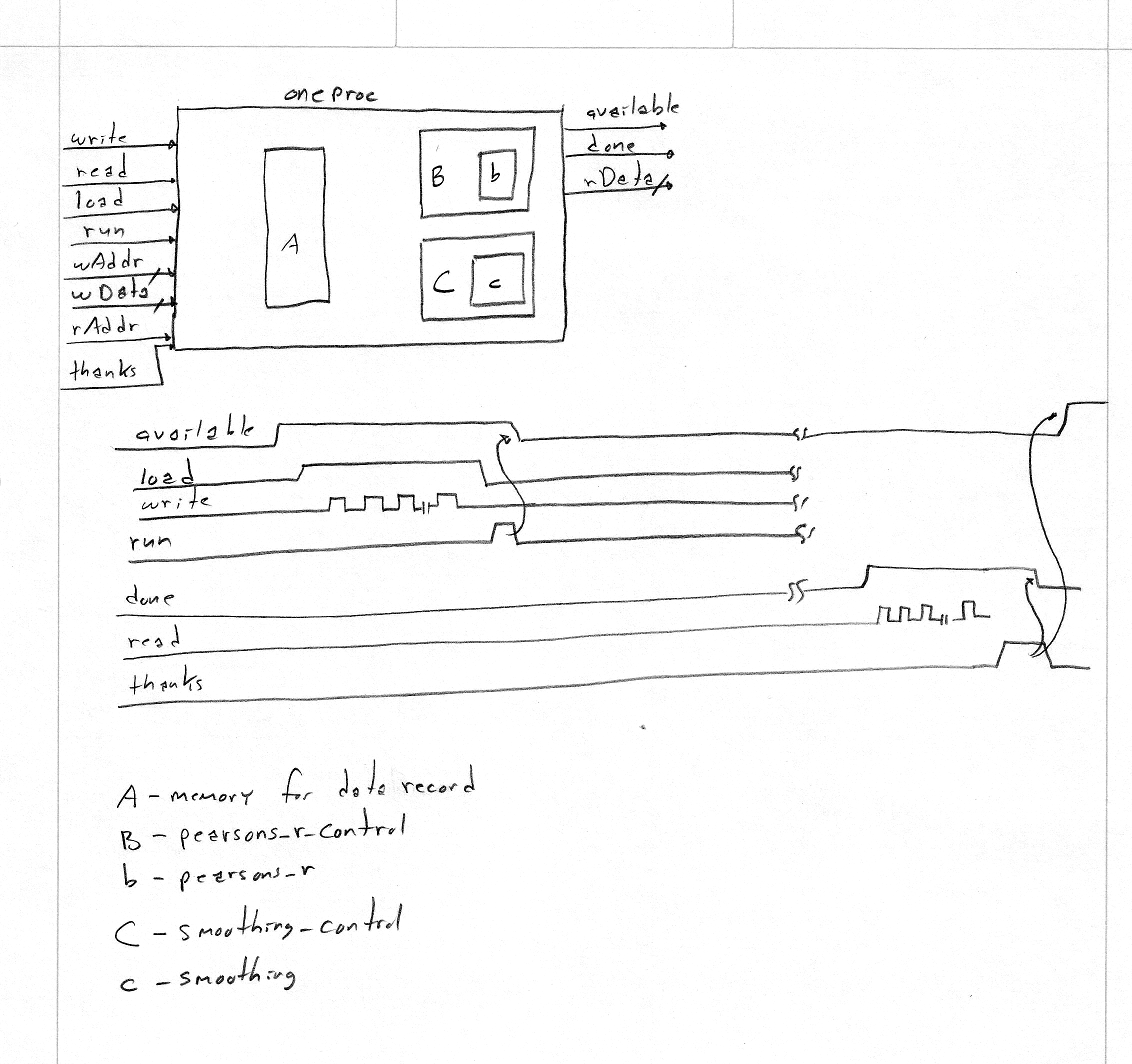 oneProc
write
read
load
run
wAddr
wData
rAddr
thanks
A
B
b
C
c
available
done
rData
available
load
write
run
done
read
thanks
A - memory for data record
B - pearsons_r_control
b - pearsons_r
C - smoothing_control
c - smoothing